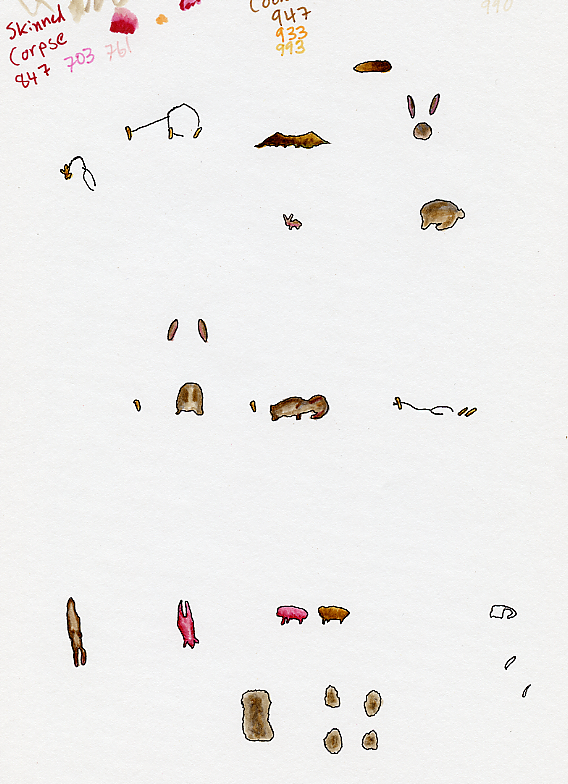 Skinned
Corpse
847 703 761
947
933
993
990